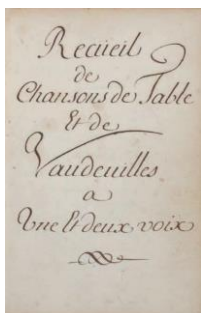 Recüeil
de
Chansons de Table
Et de
Vaudeuilles
a
Une Et deux voix